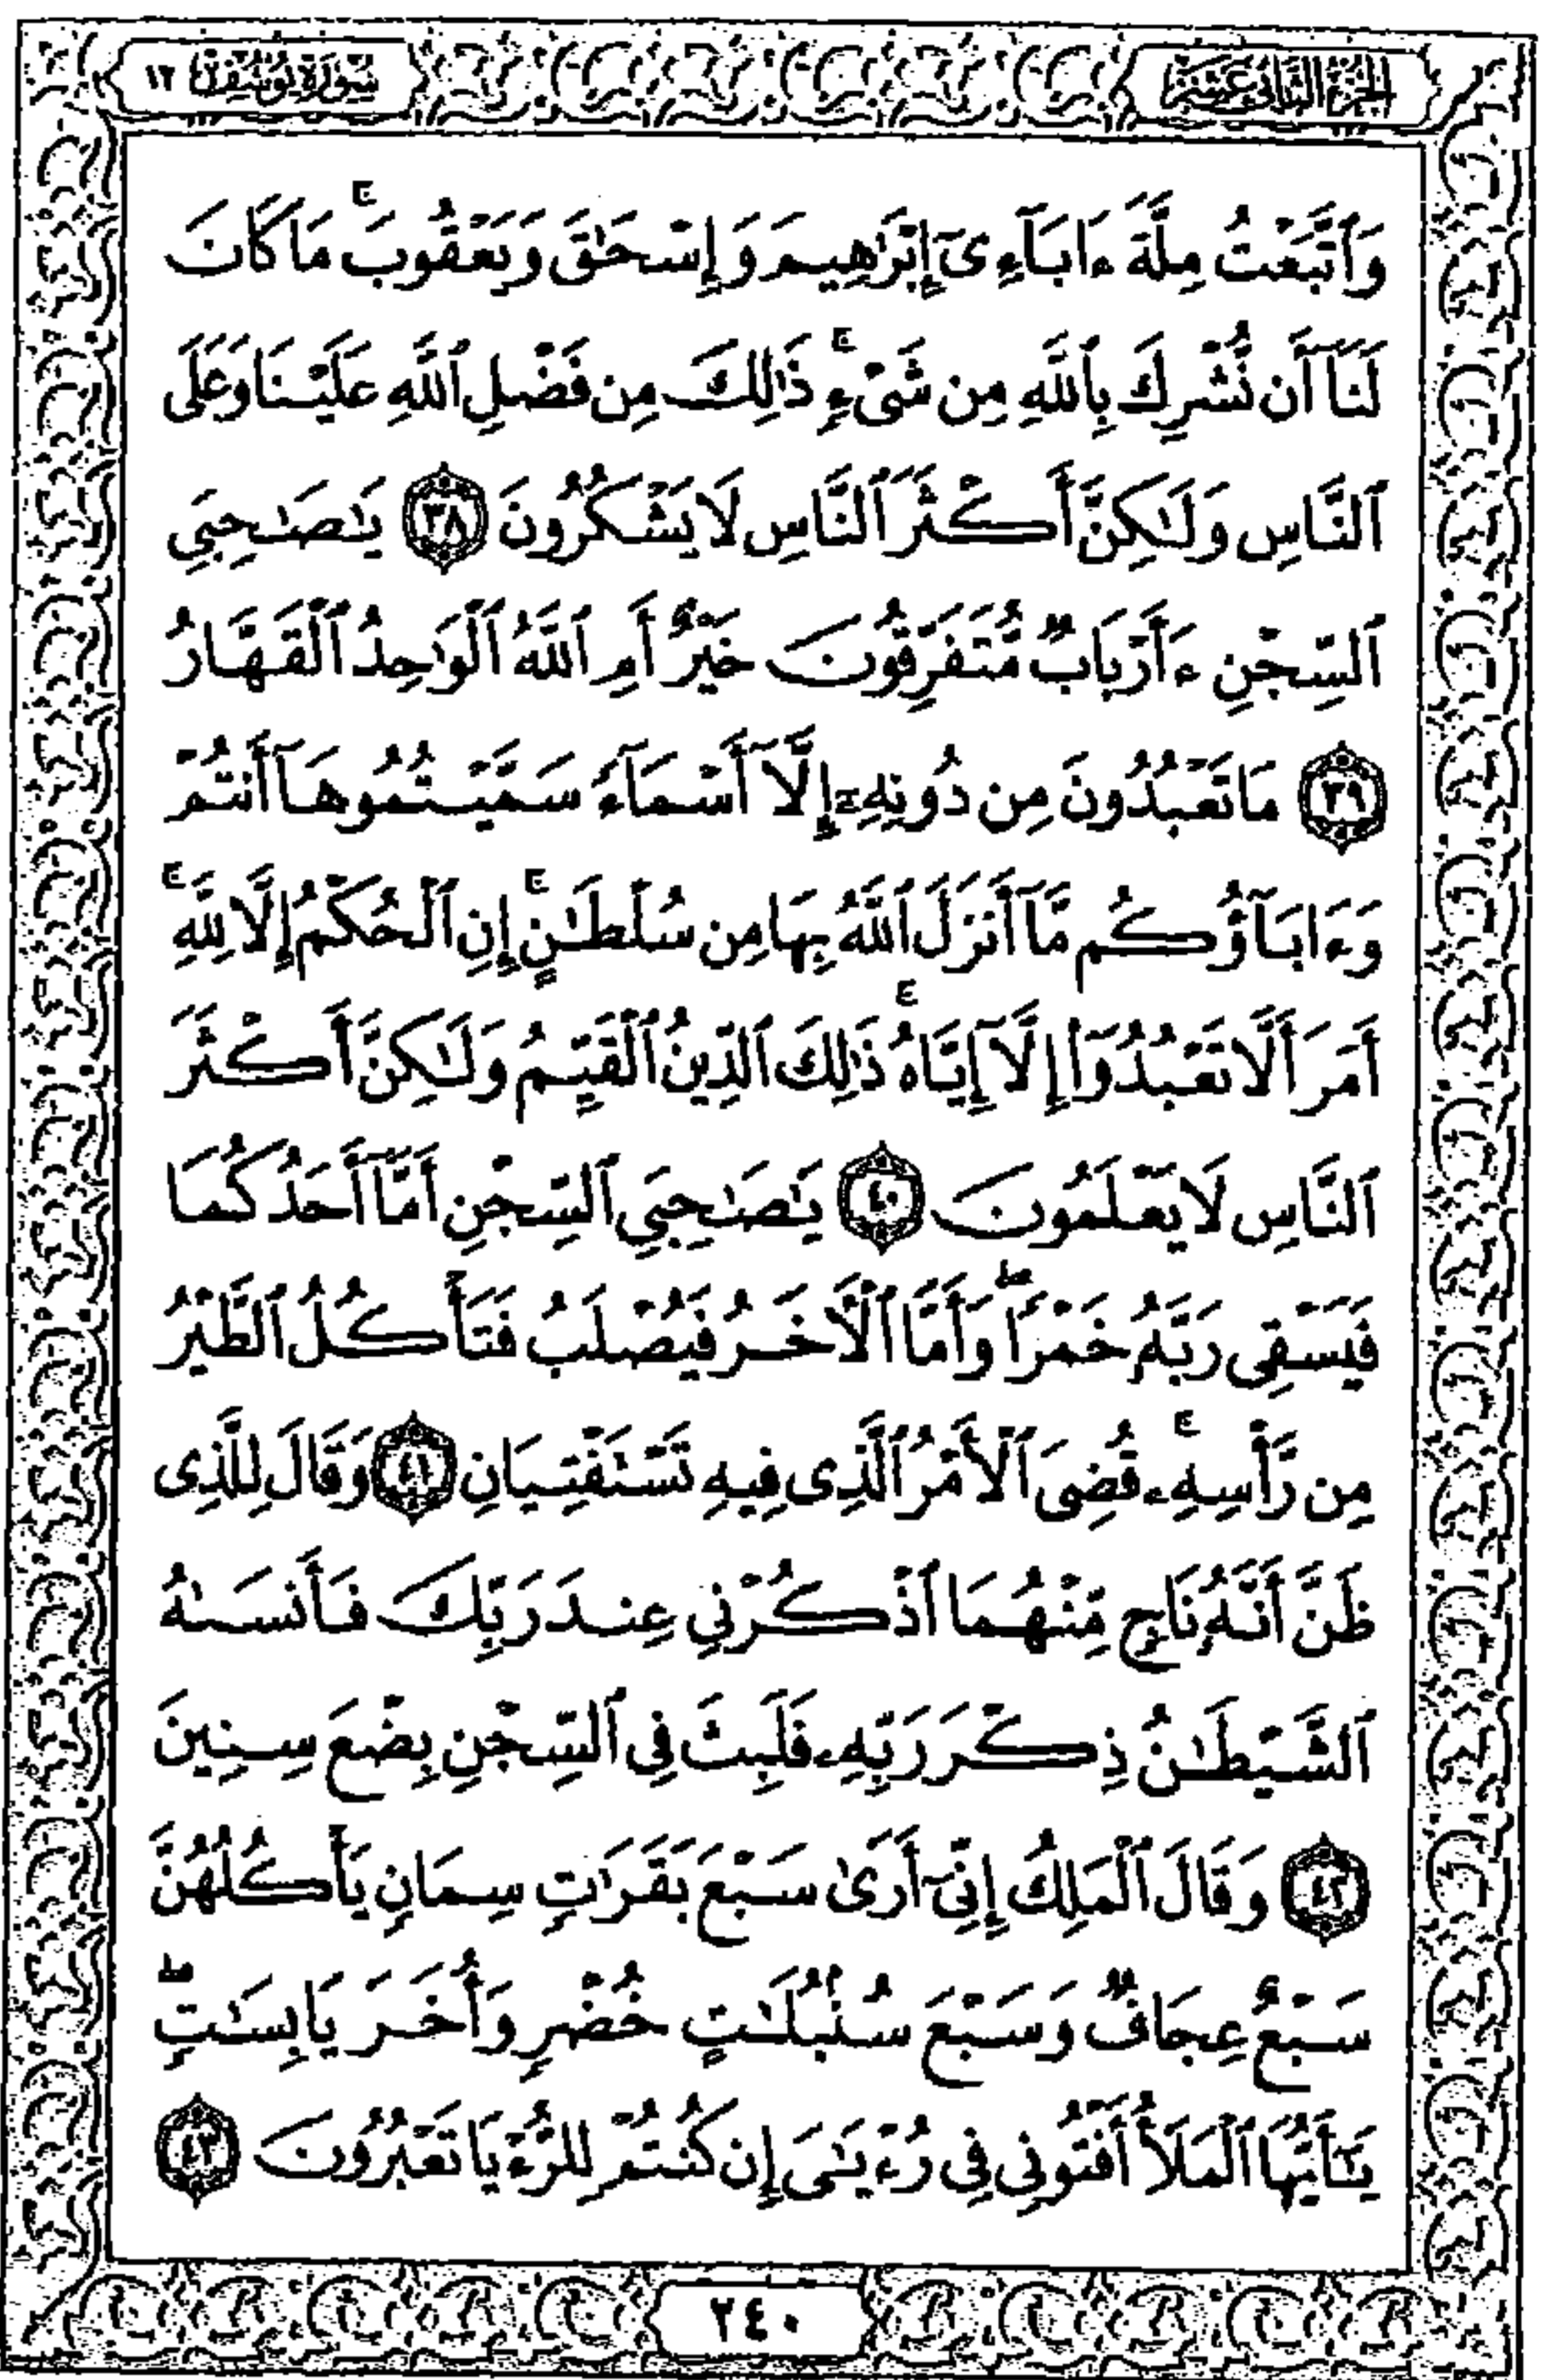 الجزء الثاني عشر
سورة يوسف ١٢
وَٱتَّبَعْتُ مِلَّةَ ءَابَآءِىٓ إِبْرَٰهِيمَ وَإِسْحَٰقَ وَيَعْقُوبَ ۚ مَا كَانَ
لَنَآ أَن نُّشْرِكَ بِٱللَّهِ مِن شَىْءٍ ۚ ذَٰلِكَ مِن فَضْلِ ٱللَّهِ عَلَيْنَا وَعَلَى
ٱلنَّاسِ وَلَٰكِنَّ أَكْثَرَ ٱلنَّاسِ لَا يَشْكُرُونَ ٣٨ يَٰصَٰحِبَىِ
ٱلسِّجْنِ ءَأَرْبَابٌ مُّتَفَرِّقُونَ خَيْرٌ أَمِ ٱللَّهُ ٱلْوَٰحِدُ ٱلْقَهَّارُ
٣٩ مَا تَعْبُدُونَ مِن دُونِهِۦٓ إِلَّآ أَسْمَآءً سَمَّيْتُمُوهَآ أَنتُمْ
وَءَابَآؤُكُم مَّآ أَنزَلَ ٱللَّهُ بِهَا مِن سُلْطَٰنٍ ۚ إِنِ ٱلْحُكْمُ إِلَّا لِلَّهِ ۚ
أَمَرَ أَلَّا تَعْبُدُوٓا۟ إِلَّآ إِيَّاهُ ۚ ذَٰلِكَ ٱلدِّينُ ٱلْقَيِّمُ وَلَٰكِنَّ أَكْثَرَ
ٱلنَّاسِ لَا يَعْلَمُونَ ٤٠ يَٰصَٰحِبَىِ ٱلسِّجْنِ أَمَّآ أَحَدُكُمَا
فَيَسْقِى رَبَّهُۥ خَمْرًا ۖ وَأَمَّا ٱلْءَاخَرُ فَيُصْلَبُ فَتَأْكُلُ ٱلطَّيْرُ
مِن رَّأْسِهِۦ ۚ قُضِىَ ٱلْأَمْرُ ٱلَّذِى فِيهِ تَسْتَفْتِيَانِ ٤١ وَقَالَ لِلَّذِى
ظَنَّ أَنَّهُۥ نَاجٍ مِّنْهُمَا ٱذْكُرْنِى عِندَ رَبِّكَ فَأَنسَىٰهُ
ٱلشَّيْطَٰنُ ذِكْرَ رَبِّهِۦ فَلَبِثَ فِى ٱلسِّجْنِ بِضْعَ سِنِينَ
٤٢ وَقَالَ ٱلْمَلِكُ إِنِّىٓ أَرَىٰ سَبْعَ بَقَرَٰتٍ سِمَانٍ يَأْكُلُهُنَّ
سَبْعٌ عِجَافٌ وَسَبْعَ سُنۢبُلَٰتٍ خُضْرٍ وَأُخَرَ يَابِسَٰتٍ ۖ
يَٰٓأَيُّهَا ٱلْمَلَأُ أَفْتُونِى فِى رُءْيَٰىَ إِن كُنتُمْ لِلرُّءْيَا تَعْبُرُونَ ٤٣
٢٤٠